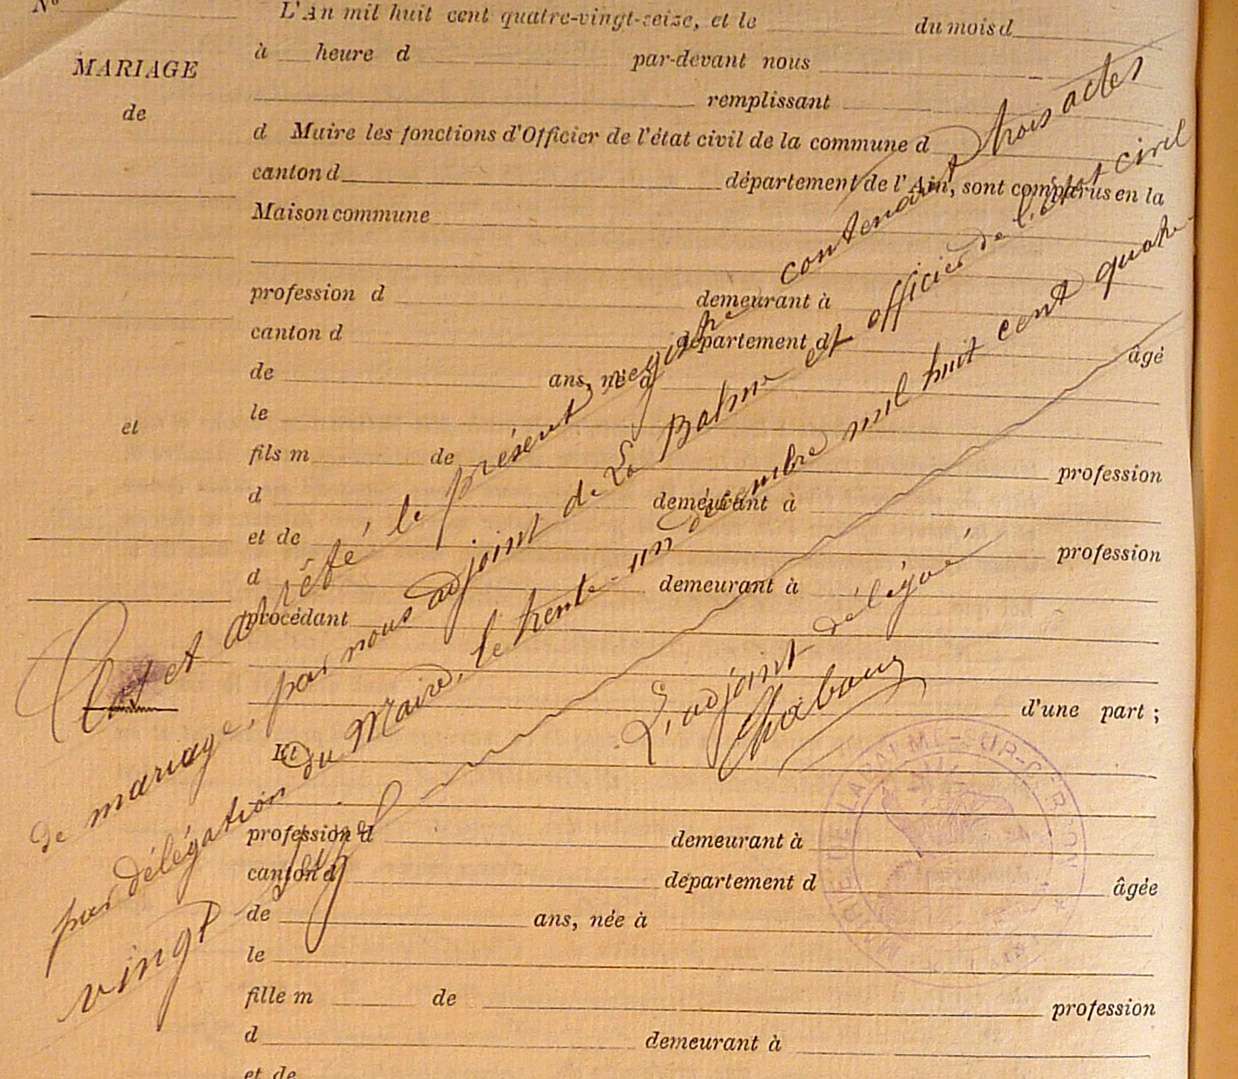 N°
L'An mil huit cent quatre-vingt-seize, et le du mois d
à heure d par-devant nous
MARIAGE
remplissant
de
d Maire les fonctions d'Officier de l'état civil de la commune d
canton d département de l'Ain, sont comparus en la
Maison commune
profession d demeurant à
canton d département d
âgé
de ans, né à
le
et
fils m de profession
d demeurant à
et de profession
d demeurant à
procédant
d'une part ;
Et
profession d demeurant à
canton d département d âgée
de ans, née à
le
fille m de profession
d demeurant à
et de
Clos et arrêté le présent registre contenant trois actes
de mariage, par nous adjoint de La Balme et officier de l'état civil
par délégation du Maire, le trente-un décembre mil huit cent quatre
vingt
L'adjoint délégué
MAIRIE DE LA BALME-SUR-CERDON